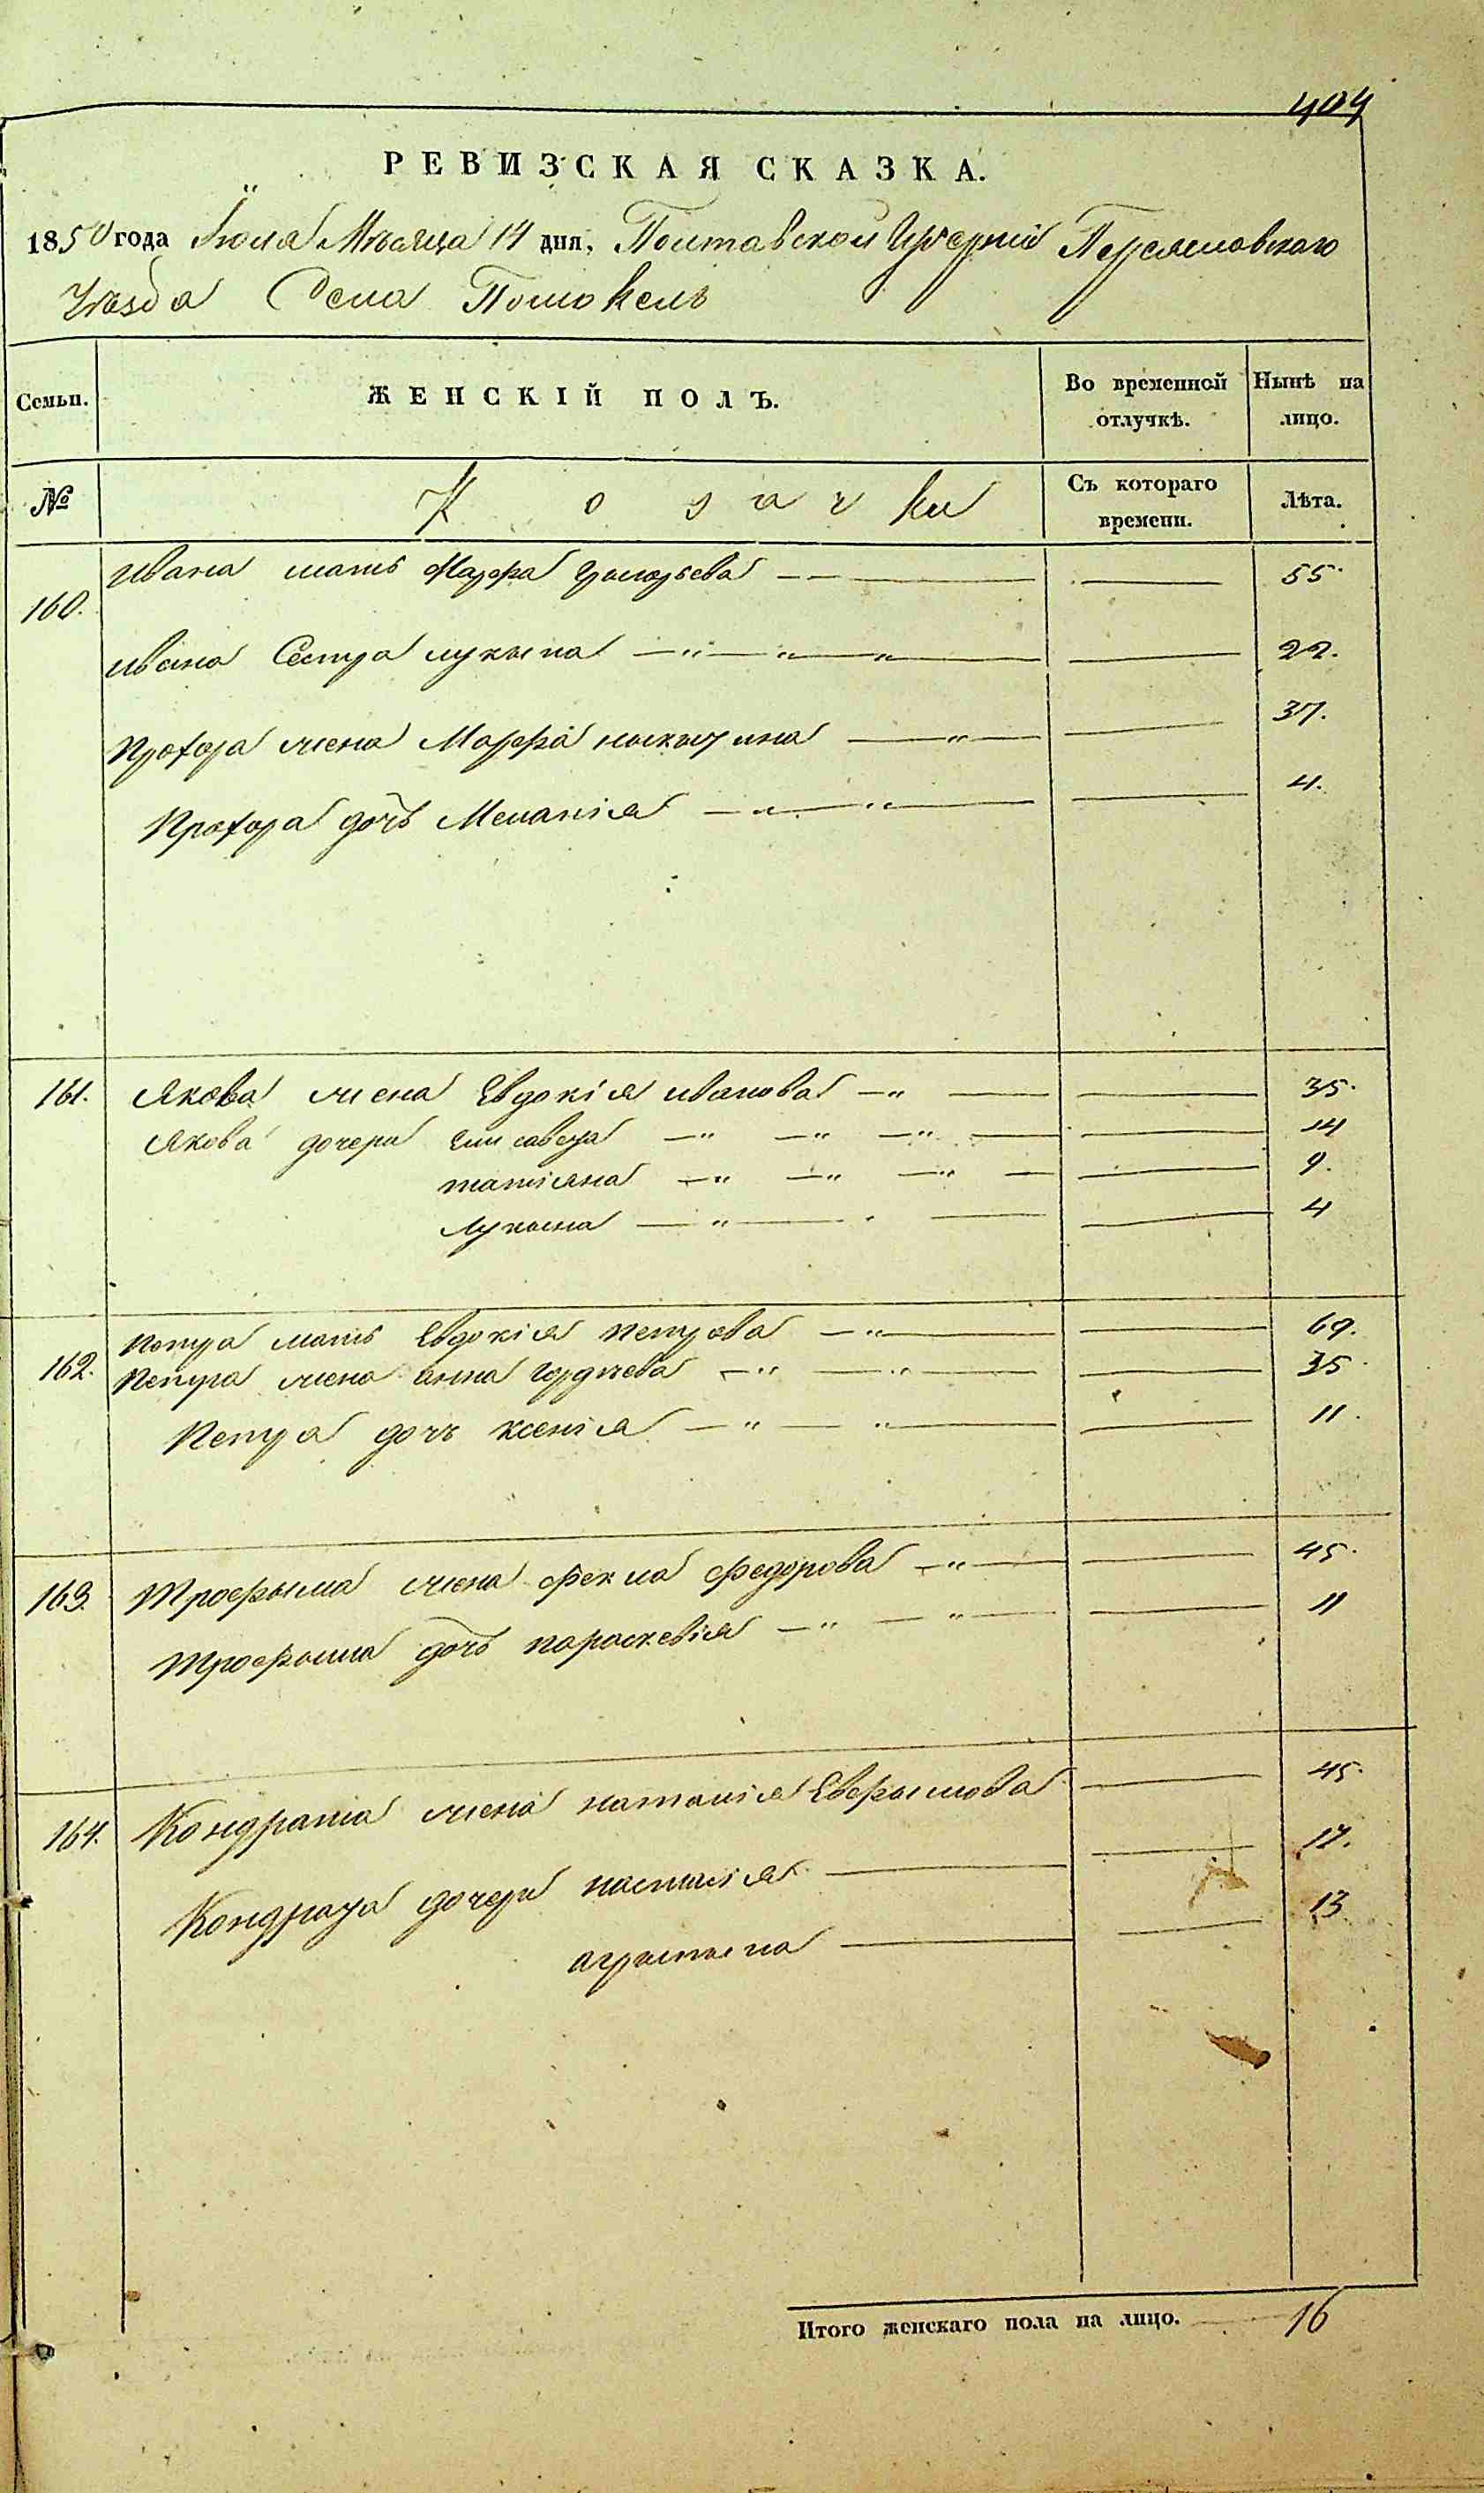 404
РЕВИЗСКАЯ СКАЗКА.
1850 года Іюля Мѣсяца 14 дня, Полтавской Губерніи Переяславскаго
Уѣзда Села Помокель
Семьи. ЖЕНСКІЙ ПОЛЪ. Во временной отлучкѣ. Нынѣ на лицо.
№ Козачки Съ котораго времени. Лѣта.
160. Ивана мать Марфа Григорьева — — 55.
Ивана Сестра лукына — — 22.
Прохора жена Марфа никытина — — 37.
Прохора дочь Меланія — — 4.
161. Якова жена Евдокія иванова — — 35.
Якова дочери Елисавета — — 14
татіяна — — 9.
лукына — — 4
162. Петра мать Евдокія петрова — — 69.
Петра жена анна гордѣева — — 35.
Петра дочь ксенія — — 11.
163. Трофыма жена фекла федорова — — 45.
Трофыма дочь параскевія — — 11
164. Кондрата жена наталія Евфымова — 45.
Кондрата дочери настасія — — 17.
агрыпына — — 13
Итого женскаго пола на лицо. — 16